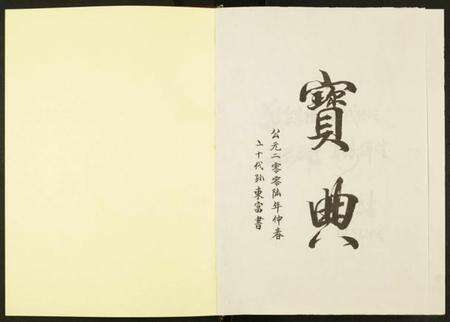 寶典
公元二零零陆年仲春
二十代孙東富書